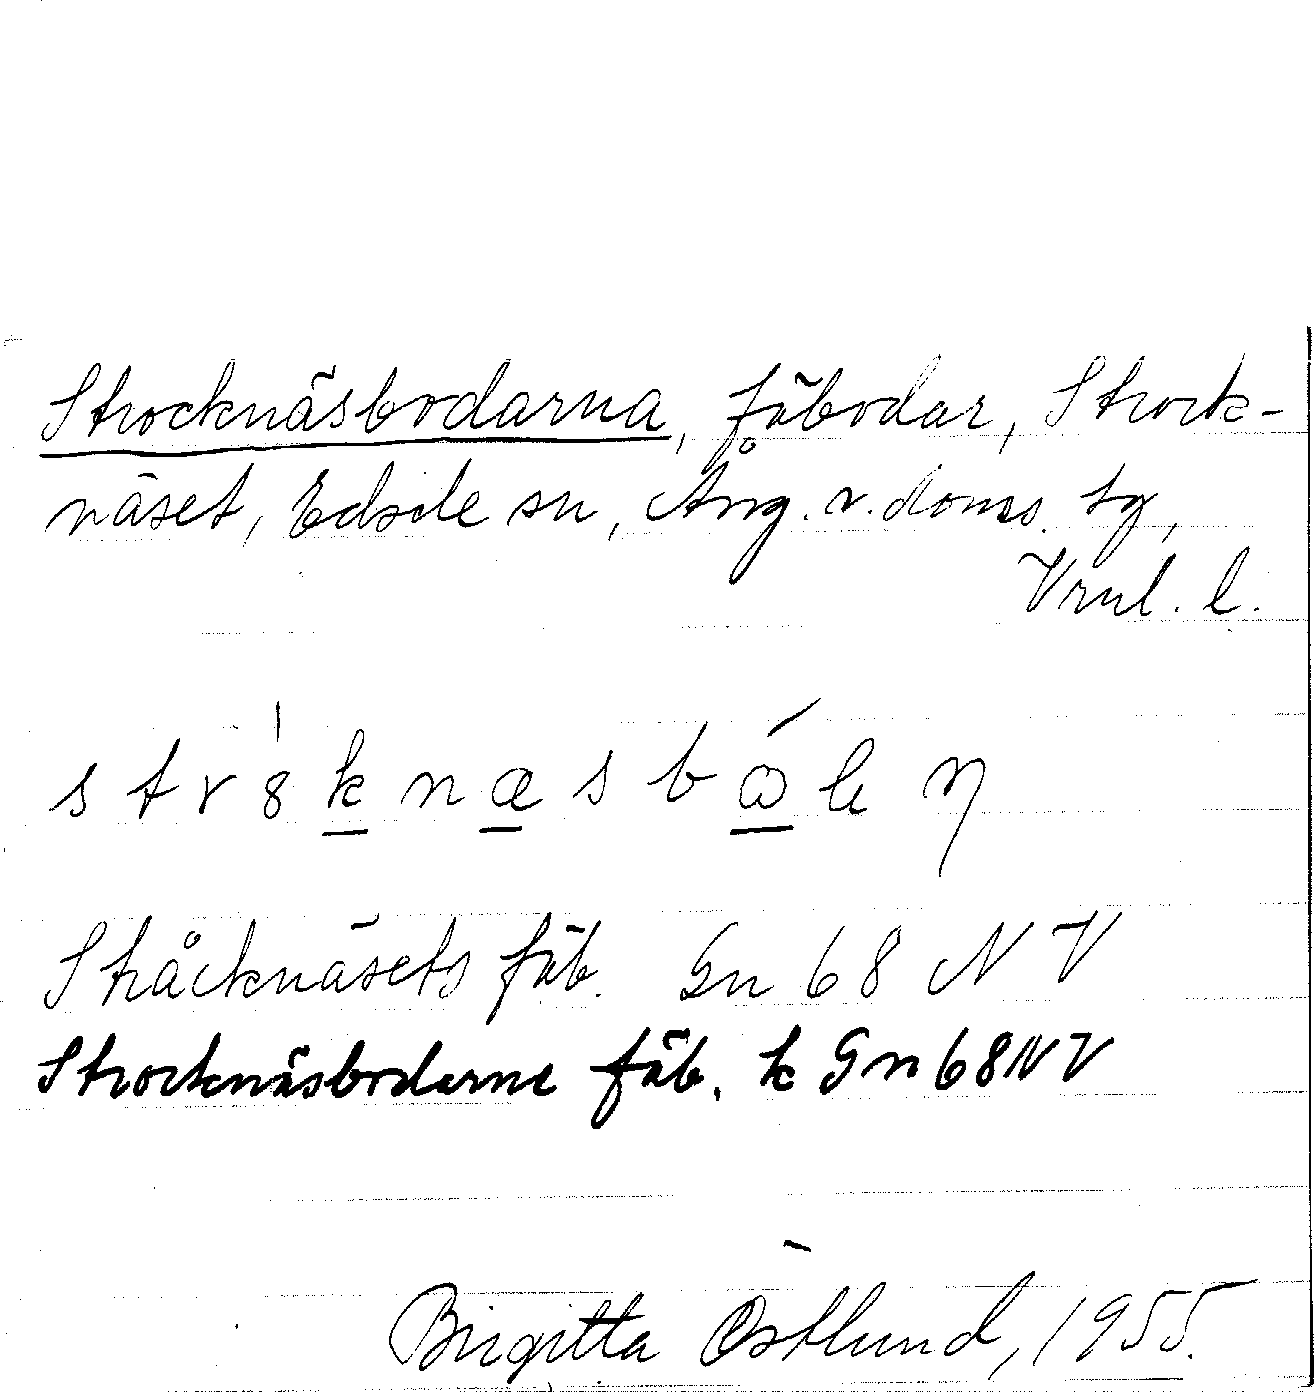 Strocknäsbodarna, fäbodar, Strock-
näset, Edsele sn, Ång. v. doms. tg,
Vnl. l.
Stråcknäsets fäb. Gn 68 NV
Strocknäsbodarne fäb. k Gn 68 NV
Birgitta Östlund, 1955.